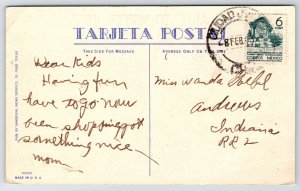 TARJETA POSTAL
THIS SIDE FOR MESSAGE
ADDRESS ONLY ON THIS SIDE
CIUDAD
FEB
6
CORREOS MEXICO
Dear Kids
Having fun
have to go now
been shopping got
something nice
mom
Miss Wanda
Andrews
Indiana
RR 2
MADE IN U.S.A.